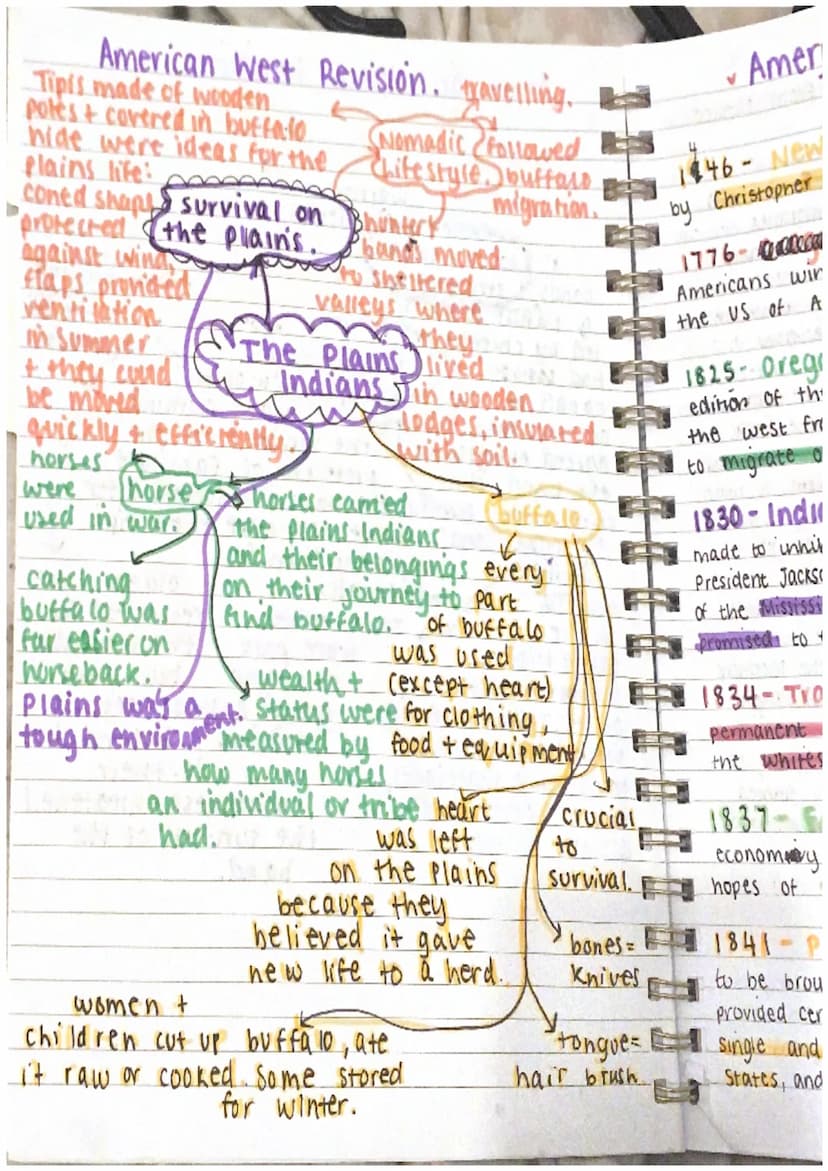 American West Revision.
Tipis made of wooden
poles + covered in buffalo
hide were ideas for the
plains life:
coned shape
protected
against wind,
flaps provided
ventilation
in summer
+ they could
be moved
quickly + efficiently.
travelling.
Nomadic
lifestyle.
followed
buffalo
migration.
survival on
the plains.
hunter
bands moved
to sheltered
valleys where
they
lived
in wooden
lodges, insulated
with soil.
The Plains
Indians
horses
were
used in war.
horse
horses carried
the plains Indians
and their belongings
on their journey to
find buffalo.
catching
buffalo was
far easier on
horseback.
plains was a
tough environment.
wealth +
status were
measured by
how many horses
an individual or tribe
had.
buffalo
every
part
of buffalo
was used
(except heart)
for clothing,
food + equipment
heart
was left
on the plains
because they
believed it gave
new life to a herd.
crucial
to
survival.
bones=
knives
tongue=
hair brush
women +
children cut up buffalo, ate
it raw or cooked. Some stored
for winter.
Amer
46 - New
by Christopher
1776 -
Americans win
the US of A
1825 - Oreg
edition of th
the west fr
to migrate o
1830 - Indi
made to
President Jacks
of the Mississi
promised to
1834 - Tro
permanent
the whites
1837 -
economy
hopes of
1841 - P
to be brou
provided cer
single and
States, and